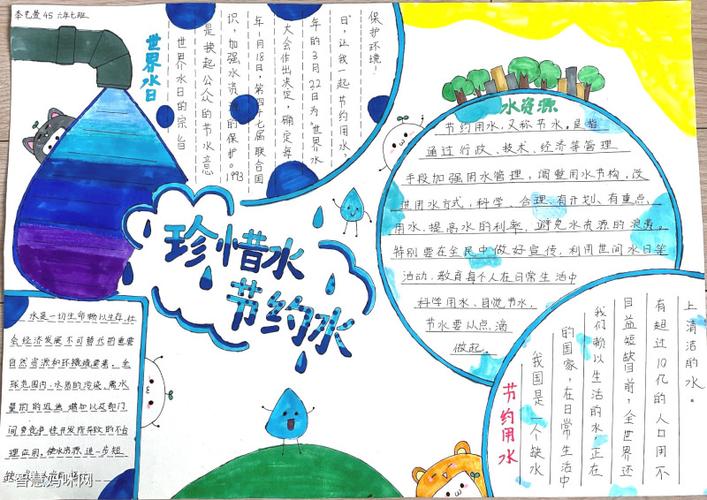 李艺萱 45 六年七班
世界水日
世界水日的宗旨
是唤起公众的节水意
识,加强水资源的保护。1993
年1月18日,第四十七届联合国
大会作出决定,确定每
年的3月22日为“世界水
日”,让我一起节约用水,
保护环境!
珍惜水
节约水
水资源
节约用水,又称节水。是指
通过行政、技术、经济等管理
手段加强用水管理,调整用水节构,改
进用水方式,科学、合理、有计划、有重点,
用水,提高水的利率,避免水资源的浪费。
特别要在全民中做好宣传,利用世间水日等
活动,教育每个人在日常生活中
科学用水,自觉节水,
节水要从点滴
做起。
水是一切生命物以生存,社
会经济发展不可替代的重要
自然资源和环境要素,全
球范围内,水质的污染、需水
量的的迅速增加以及部门
间竞争性开发所导致的不合
理应用,使水资源进一步短
节约用水
我国是一个缺水
的国家,在日常生活中
我们赖以生活的水,正在
日益短缺目前,全世界还
有超过10亿的人口用不
上清洁的水。
智慧妈咪网